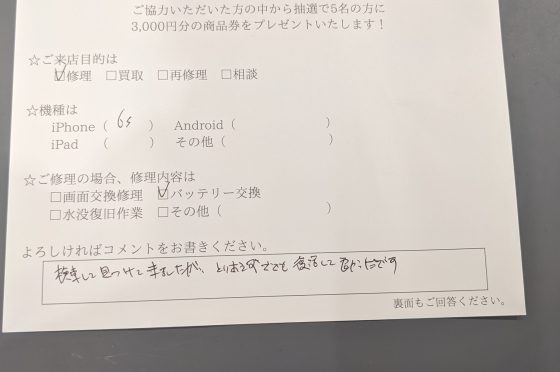 ご協力いただいた方の中から抽選で5名の方に
3,000円分の商品券をプレゼントいたします！
☆ご来店目的は
☑修理 □買取 □再修理 □相談
☆機種は
iPhone（ 6s ） Android（ ）
iPad （ ） その他（ ）
☆ご修理の場合、修理内容は
□画面交換修理 ☑バッテリー交換
□水没復旧作業 □その他（ ）
よろしければコメントをお書きください。
検索して見つけて来ましたが、とりあえず 復活して よかったです
裏面もご回答ください。